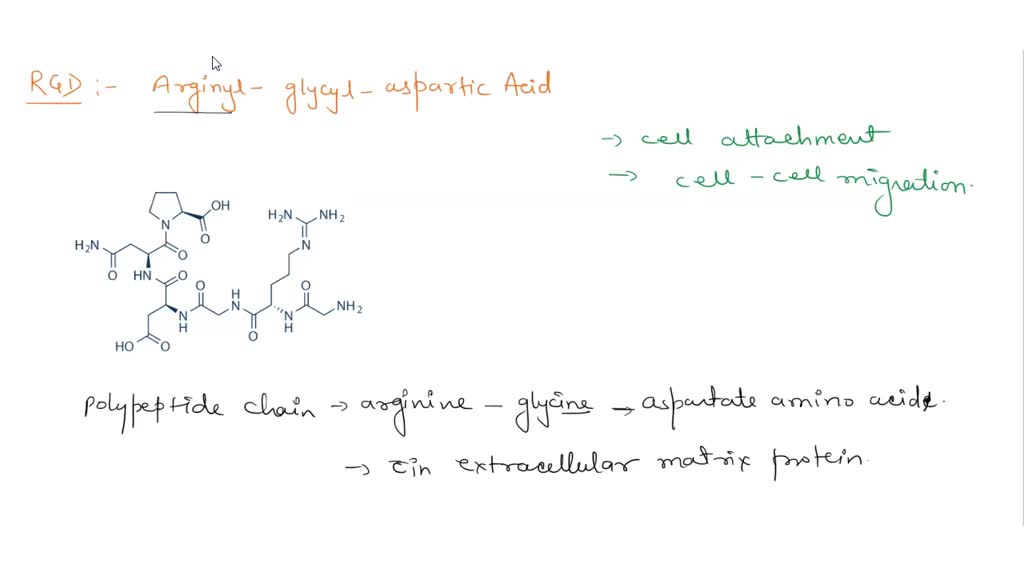 RGD :- Arginyl - glycyl - aspartic Acid
→ cell attachment
→ cell - cell migration.
OH
O
N
H2N
NH2
N
H2N
O
O
HN
O
O
H
N
O
NH2
N
H
O
N
H
HO
O
polypeptide chain → arginine - glycine → aspartate amino acid.
→ in extracellular matrix protein.